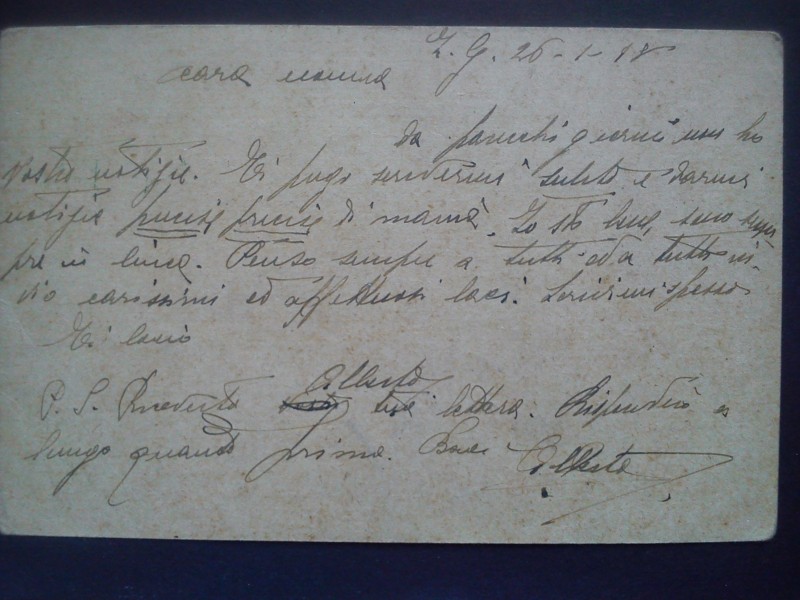 Z. G. 26-1-18
cara nonna
da parecchi giorni non ho
vostre notizie. Ti prego scrivermi subito e darmi
notizie precise precise di mamà. Io sto bene, sono sem
pre in linea. Penso sempre a tutti ed a tutti in-
vio carissimi ed affettuosi baci. Scrivimi spesso
Ti bacio
Alberto
P. S. Ricevuto tua lettera. Risponderò a
lungo quanto prima. Baci Alberto